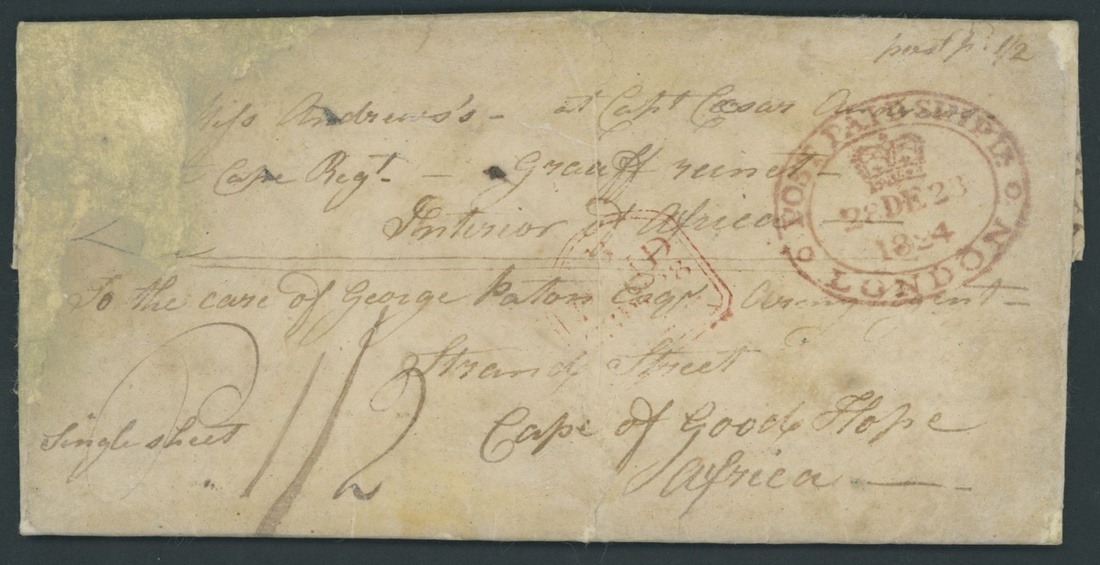 post p. 1/2
Miss Andrews's - at Capt Cesar Andrews
Cape Regt. - Graaff reinet -
Interior of Africa
To the care of George Paton Esqr - Army Agent -
Strand Street
Single sheet
1/2
Cape of Good Hope
Africa
POST PAID SHIP LR
28 DE 28
1824
LONDON
PAID